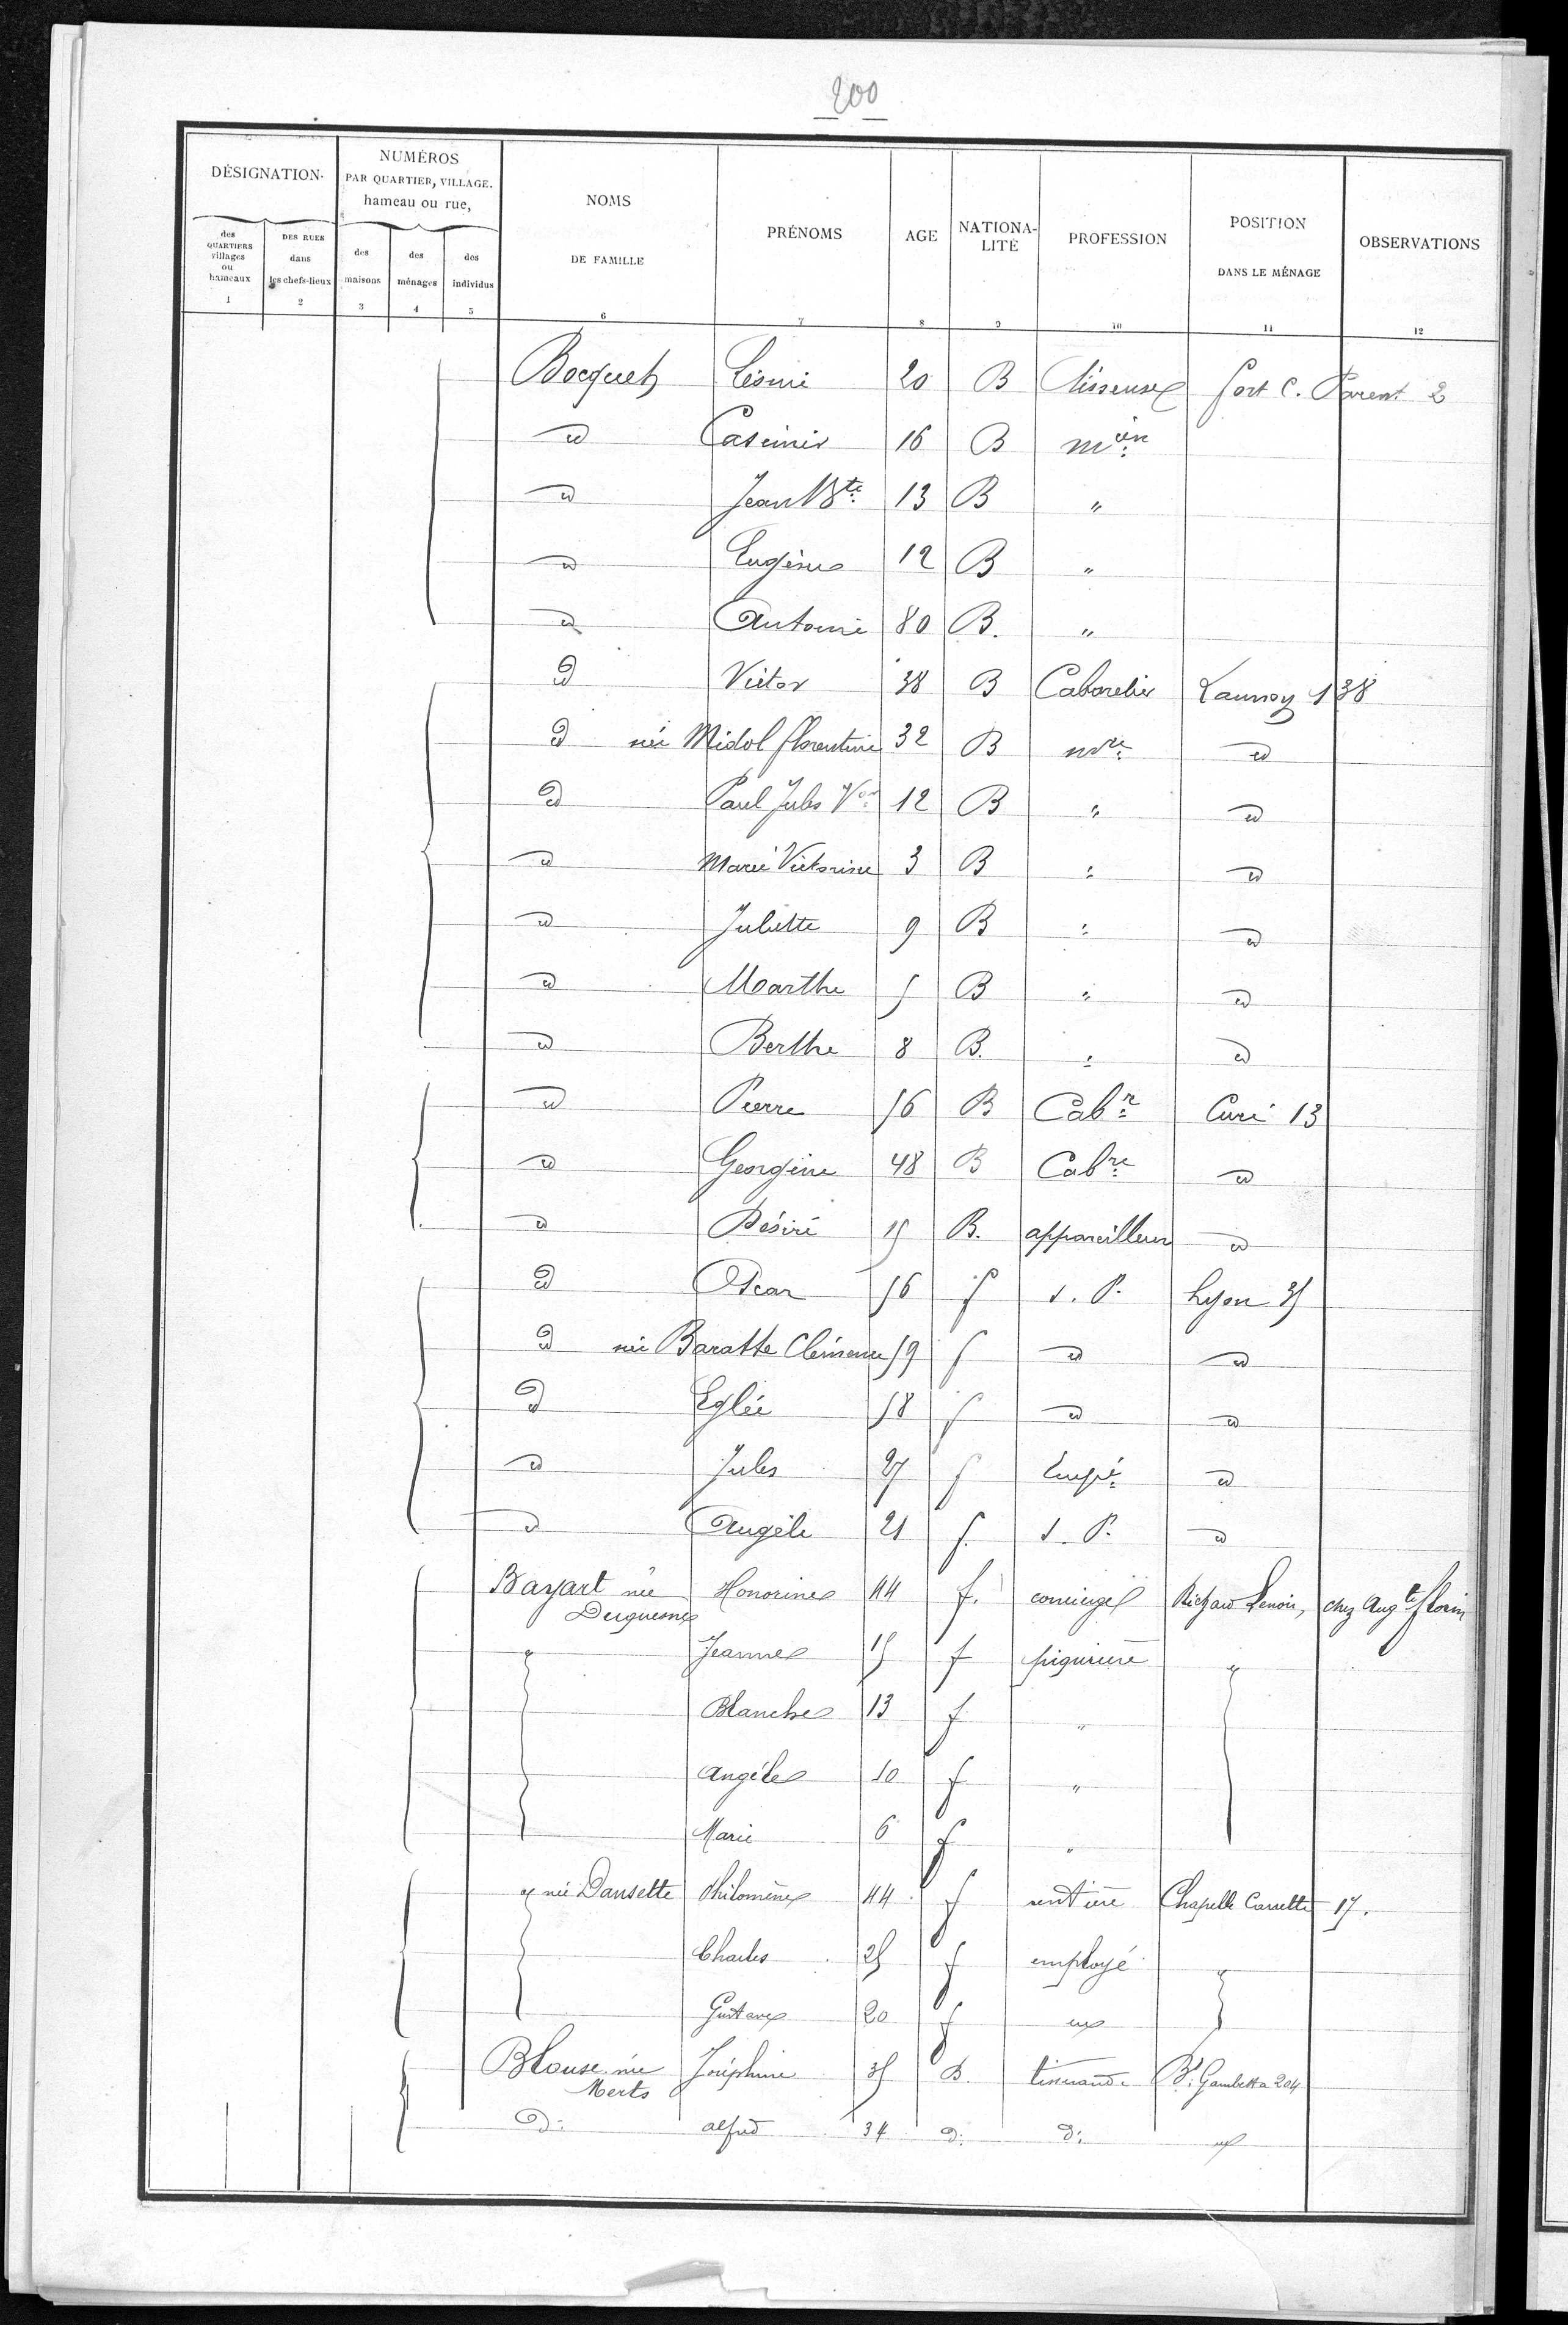 200
DÉSIGNATION
NUMÉROS PAR QUARTIER, VILLAGE. hameau ou rue,
NOMS DE FAMILLE
PRÉNOMS
AGE
NATIONALITÉ
PROFESSION
POSITION DANS LE MÉNAGE
OBSERVATIONS
des QUARTIERS villages ou hameaux
DES RUES dans les chefs-lieux
des maisons
des ménages
des individus
1 2 3 4 5 6 7 8 9 10 11 12
Bocquet 20 B fort C. Parent 2
d Casimir 16 B
d Jean Bte 13 B "
d Eugène 12 B "
d Antoine 80 B. "
d Victor 38 B Cabaretier Lannoy 138
d née Midol florentine 32 B d
d Paul Jules Vor 12 B " d
d Marie Victorine 3 B " d
d Juliette 9 B " d
d Marthe 5 B " d
d Berthe 8 B. " d
d Pierre 56 B Cabr Curé 13
d Georgine 48 B Cabre d
d Désiré 15 B. appareilleur d
d Oscar 56 f s. P. Lyon 35
d née Baratte Clémence 59 f d d
d Eglée 58 f d d
d Jules 27 f Empé d
d Angèle 21 f. s. P. d
Bayart née Duquesne Honorine 44 f. concierge Richard Lenoir, chez Augte florin
" Jeanne 15 f piqurière "
Blanche 13 f "
Angèle 10 f "
Marie 6 f "
" née Dansette Philomène 44 f rentière Chapelle Carrette 17.
Charles 25 f employé "
Gustave 20 f
Blouse née Merts Joséphine 35 B. tisserande Bd Gambetta 204
d: alfred 34 d: d: